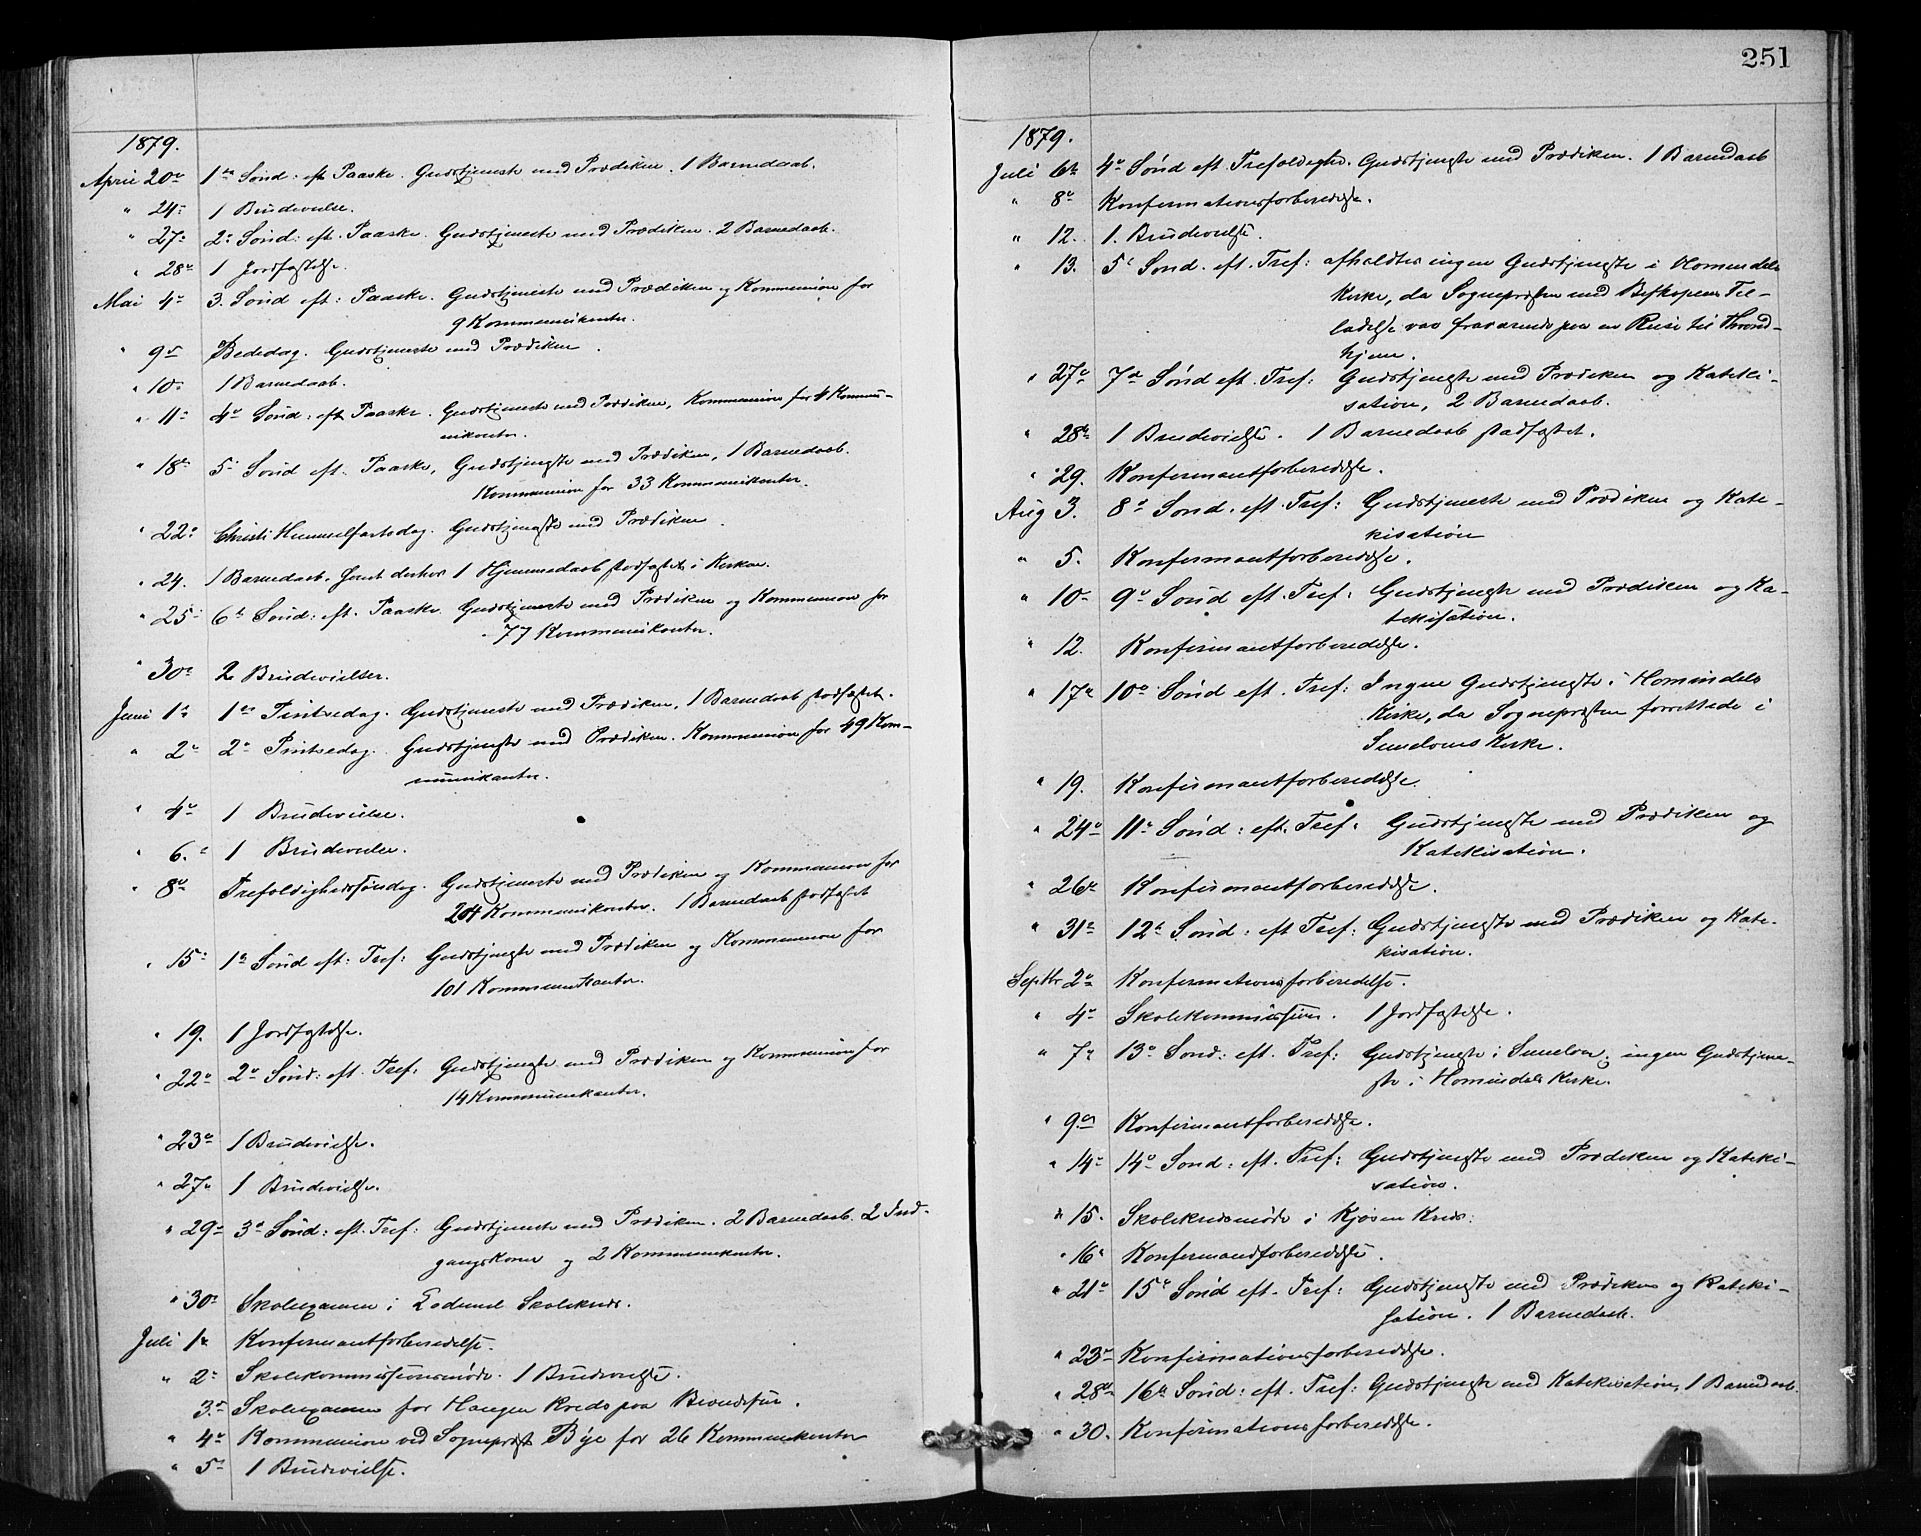 1879.
April 20de 1ste Sönd. eft. Paaske. Gudstjeneste med Prædiken. 1 Barnedaab.
" 24: 1 Brudevielse.
" 27: 2: Sönd: eft. Paaske. Gudstjeneste med Prædiken. 2 Barnedaab.
" 28de 1 Jordfæstelse.
Mai 4de 3. Sönd eft: Paaske. Gudstjeneste med Prædiken og Kommunion for
9 Kommunikanter.
" 9de Bededag. Gudstjeneste med Prædiken.
" 10: 1 Barnedaab.
" 11: 4de Sönd: eft Paaske. Gudstjeneste med Prædiken, Kommunion for 4 Kommu-
nikanter.
" 18de 5: Sönd eft. Paaske, Gudstjeneste med Prædiken, 1 Barnedaab.
Kommunion for 33 Kommunikanter.
" 22: Christi Himmelfartsdag. Gudstjeneste med Prædiken.
" 24. 1 Barnedaab, samt 1 Hjemmedaab stadfæstet i Kirken.
" 25: 6te Sönd: eft. Paaske. Gudstjeneste med Prædiken og Kommunion for
77 Kommunikanter.
" 30: 2 Brudevielser.
Juni 1ste 1ste Pintsedag. Gudstjeneste med Prædiken, 1 Barnedaab stadfæstet.
" 2de 2de Pintsedag. Gudstjeneste med Prædiken. Kommunion for 49 Kom-
munikanter.
" 4de 1 Brudevielse.
" 6. 1 Brudevielse.
" 8de Trefoldighedssöndag. Gudstjeneste med Prædiken og Kommunion for
204 Kommunikanter. 1 Barnedaab stadfæstet
" 15: 1ste Sönd eft: Tref: Gudstjeneste med Prædiken og Kommunion for
101 Kommunikanter.
" 19. 1 Jordfæstelse.
" 22de 2de Sönd: eft. Tref: Gudstjeneste med Prædiken og Kommunion for
14 Kommunikanter.
" 23de 1 Brudevielse.
" 27de 1 Brudevielse.
" 29de 3de Sönd: eft. Tref: Gudstjeneste med Prædiken. 2 Barnedaab. 2 Ind-
gangskoner og 2 Kommunikanter.
" 30: Skoleexamen i Skolekreds.
Juli 1ste Konfirmantforberedelse.
" 2: Skolekommissionsmöde. 1 Brudevielse.
3. Skoleexamen for Haugen Kreds paa
" 4de Kommunion ved Sognepræst Bye for 26 Kommunikanter
" 5te 1 Brudevielse.
251
1879.
Juli 6te 4de Sönd eft. Trefoldighed. Gudstjeneste med Prædiken. 1 Barnedaab
" 8de Konfirmationsforberedelse.
" 12. 1. Brudevielse.
" 13. 5te Sönd. eft. Tref: afholdtes ingen Gudstjeneste i Hommedals
Kirke, da Sognepræsten med Biskopens Til-
ladelse var fraværende paa en Reise til Thrond-
hjem.
" 27de 7de Sönd eft. Tref: Gudstjeneste med Prædiken og Kateki-
sation, 2 Barnedaab.
" 28de 1 Brudevielse. 1 Barnedaab stadfæstet.
" 29. Konfirmantforberedelse.
Aug 3. 8de Sönd. eft. Tref: Gudstjeneste med Prædiken og Kate-
kisation
" 5. Konfirmantforberedelse.
" 10: 9de Sönd eft. Tref: Gudstjeneste med Prædiken og Ka-
tekisation.
" 12. Konfirmantforberedelse.
" 17de 10de Sönd eft. Tref: Ingen Gudstjeneste i Hommedals
Kirke, da Sognepræsten forrettede i
Kirke.
" 19. Konfirmantforberedelse.
" 24de 11te Sönd: eft. Tref: Gudstjeneste med Prædiken og
Katekisation.
" 26de Konfirmantforberedelse.
" 31te 12te Sönd: eft Tref: Gudstjeneste med Prædiken og Kate-
kisation.
Septbr 2de Konfirmationsforberedelse.
" 4de Skolekommission. 1 Jordfæstelse.
" 7de 13de Sönd: eft. Tref: Gudstjeneste i ingen Gudstjene-
ste i Hommedals Kirke.
" 9de Konfirmantforberedelse.
" 14: 14de Sönd: eft. Tref: Gudstjeneste med Prædiken og Kateki-
sation.
" 15. Skolekredsmöde i Kjösen Kreds.
" 16: Konfirmandforberedelse.
" 21de 15de Sönd eft. Tref: Gudstjeneste med Prædiken og Kateki-
sation. 1 Barnedaab.
" 23de Konfirmationsforberedelse.
" 28de 16de Sönd: eft. Tref: Gudstjeneste med Katekisation, 1 Barnedaab.
" 30. Konfirmationsforberedelse.